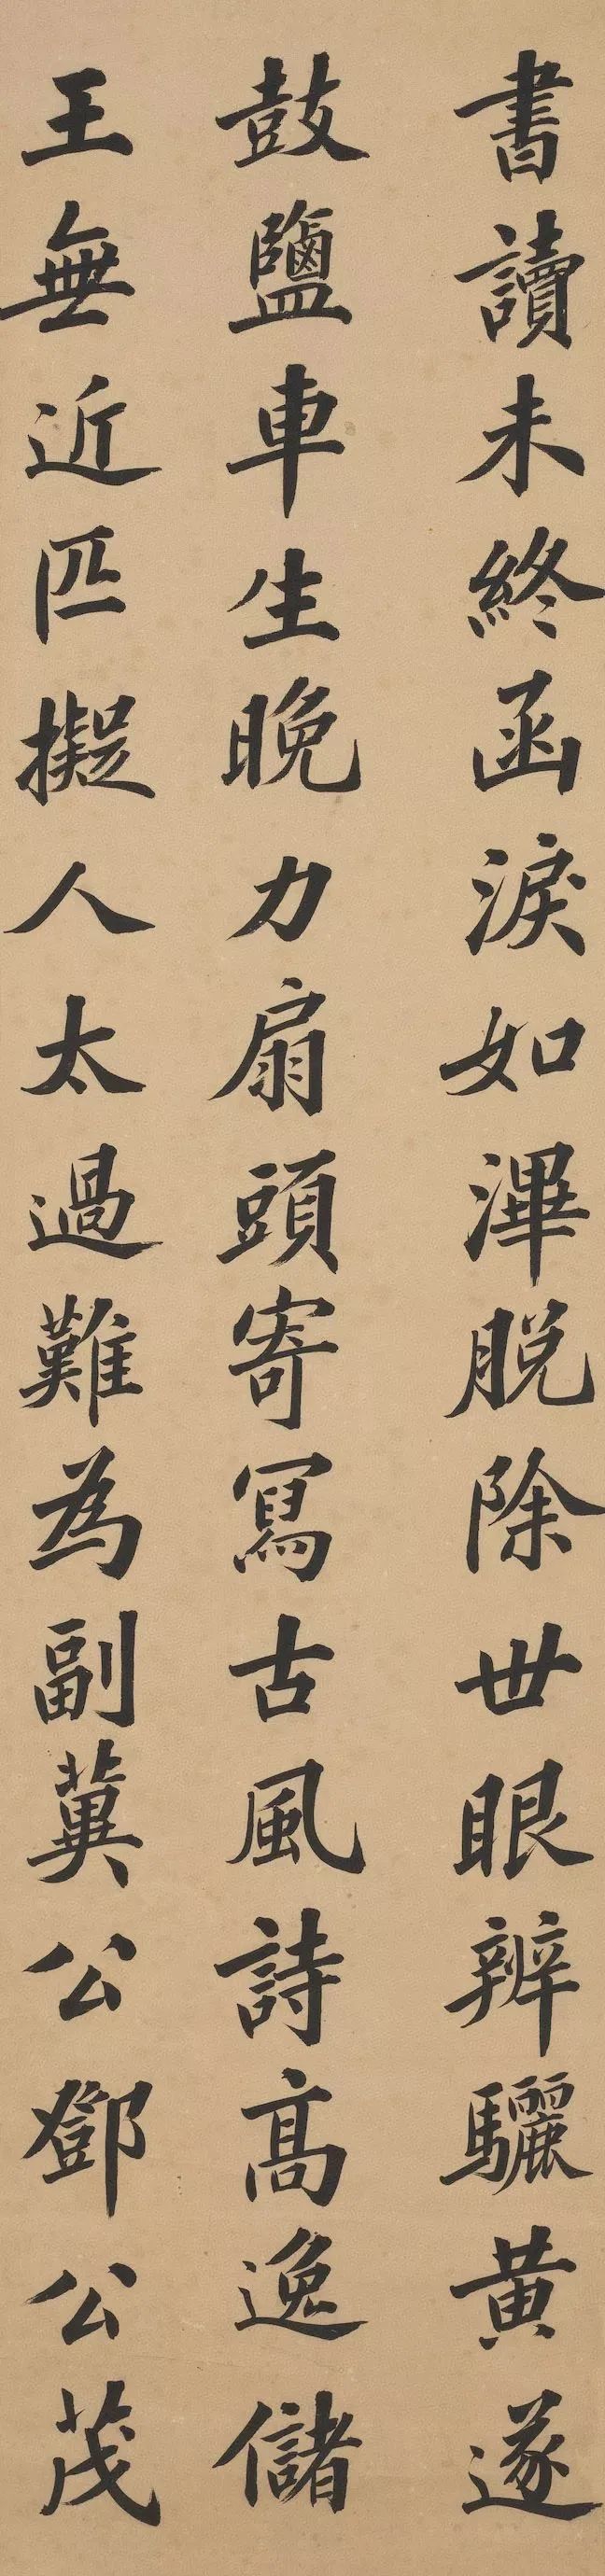 書讀未終函淚如渾脫除世眼辨驪黃遂
鼓鹽車生晚力扇頭寄寫古風詩高逸儲
王無近匹擬人太過難為副冀公鄧公茂